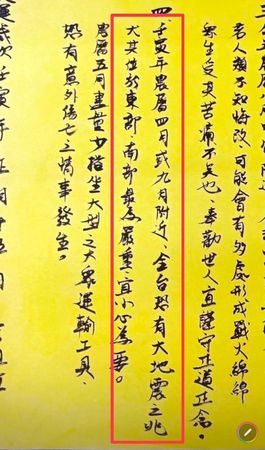 者人類不知悔改、可能會有多處形成戰火綿綿
眾生受其苦痛不矣也、奉勸世人宜謹守正道正念。
四、壬寅年農曆四月或九月附近、全台恐有大地震之兆
尤其位於東部、南部最為嚴重、宜小心為要。
農曆五月盡量少搭坐大型之大眾運輸工具、
恐有意外傷亡之情事發生。
歲次壬寅年正月十五日